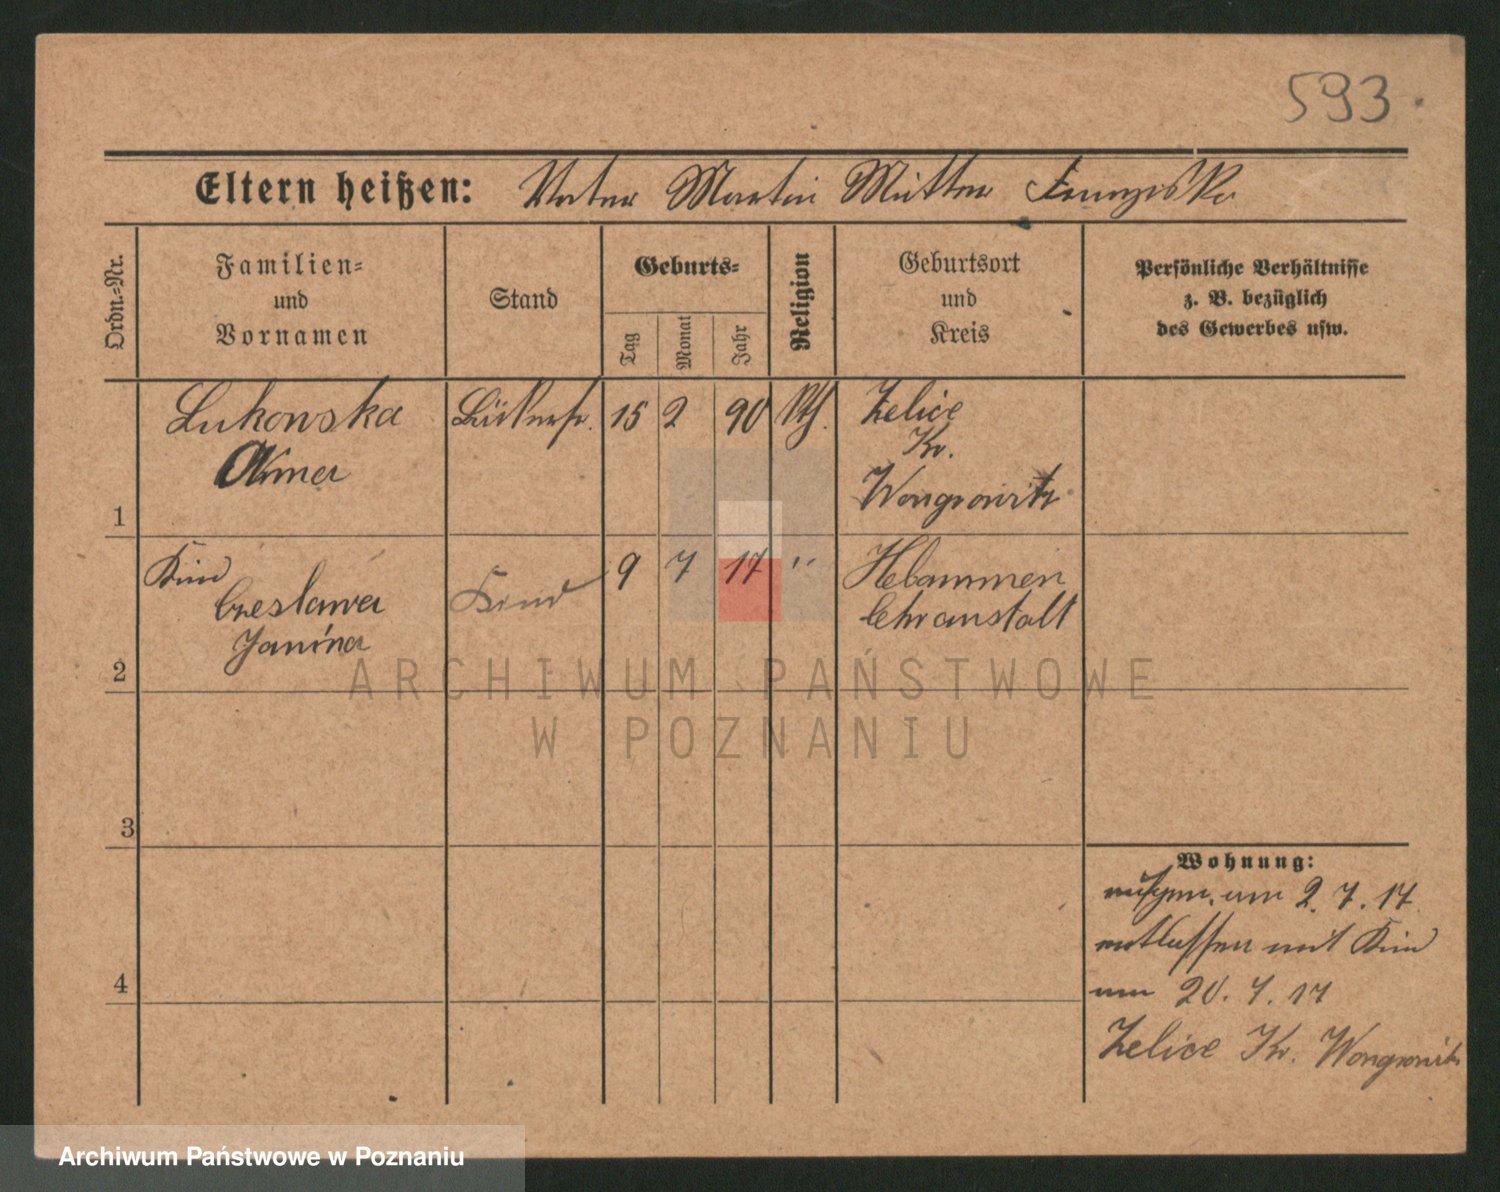 593.
Eltern heißen: Vater Martin Mutter Franziska
Ordn.-Nr.
Familien-
und
Vornamen
Stand
Geburts-
Tag
Monat
Jahr
Religion
Geburtsort
und
Kreis
Persönliche Verhältnisse
z. B. bezüglich
des Gewerbes usw.
1
Lukowska
Anna
15 2 90 kth.
Zelice
Kr.
Wongrowitz
2
Kind
Czeslawa
Janina
Kind
9 7 17 "
Hebammen
lehranstalt
3
4
Wohnung:
aufgen. am 2. 7. 17
entlassen mit Kind
am 20. 7. 17
Zelice Kr. Wongrowitz
ARCHIWUM PAŃSTWOWE
W POZNANIU
Archiwum Państwowe w Poznaniu